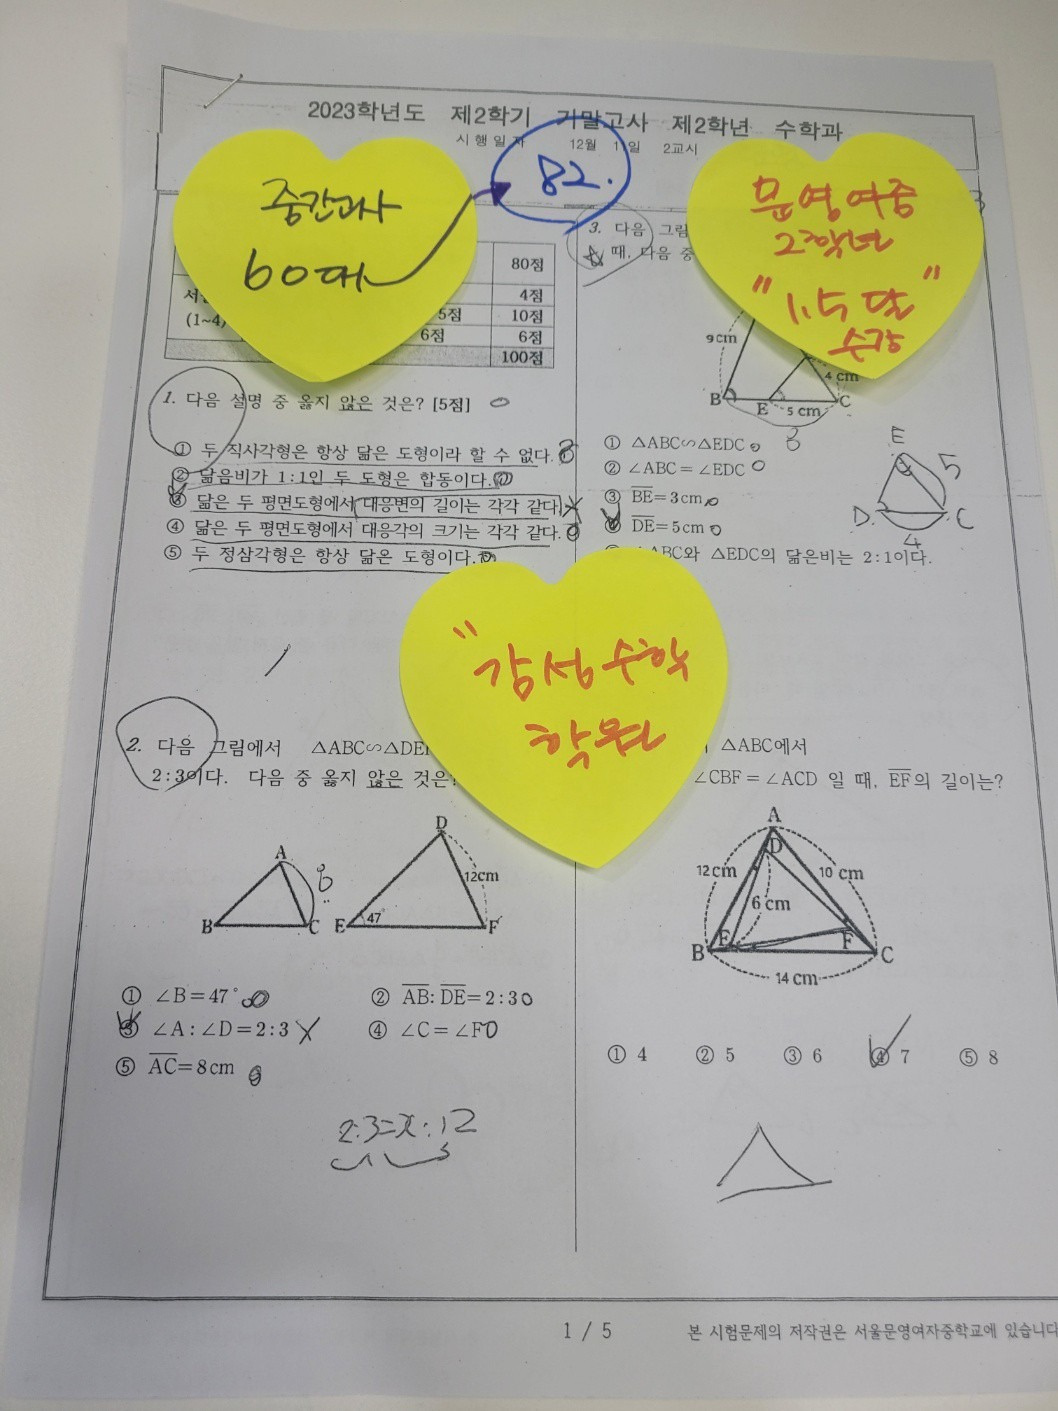 2023학년도 제2학기 기말고사 제2학년 수학과
시행일자 12월 1일 2교시
중간고사
60대
82.
문영여중
2학년
"1.5달"
수강
80점
4점
(1~4) 5점 10점
6점 6점
100점
1. 다음 설명 중 옳지 않은 것은? [5점]
① 두 직사각형은 항상 닮은 도형이라 할 수 없다.
② 닮음비가 1:1인 두 도형은 합동이다.
③ 닮은 두 평면도형에서 대응변의 길이는 각각 같다.
④ 닮은 두 평면도형에서 대응각의 크기는 각각 같다.
⑤ 두 정삼각형은 항상 닮은 도형이다.
2. 다음 그림에서 △ABC∽△DE
2:3이다. 다음 중 옳지 않은 것은?
A
8
B
C
D
12cm
E
47°
F
① ∠B=47°
② AB:DE=2:3
③ ∠A:∠D=2:3
④ ∠C=∠F
⑤ AC=8cm
2:3=x:12
3. 다음 그림
때, 다음 중
9cm
4cm
B
E
5cm
C
8
① △ABC∽△EDC
② ∠ABC=∠EDC
③ BE=3cm
④ DE=5cm
△ABC와 △EDC의 닮은비는 2:1이다.
E
5
D
C
4
"감성수학
학원
△ABC에서
∠CBF=∠ACD 일 때, EF의 길이는?
A
D
12cm
10cm
6cm
B
E
F
C
14cm
① 4 ② 5 ③ 6 ④ 7 ⑤ 8
1 / 5
본 시험문제의 저작권은 서울문영여자중학교에 있습니다